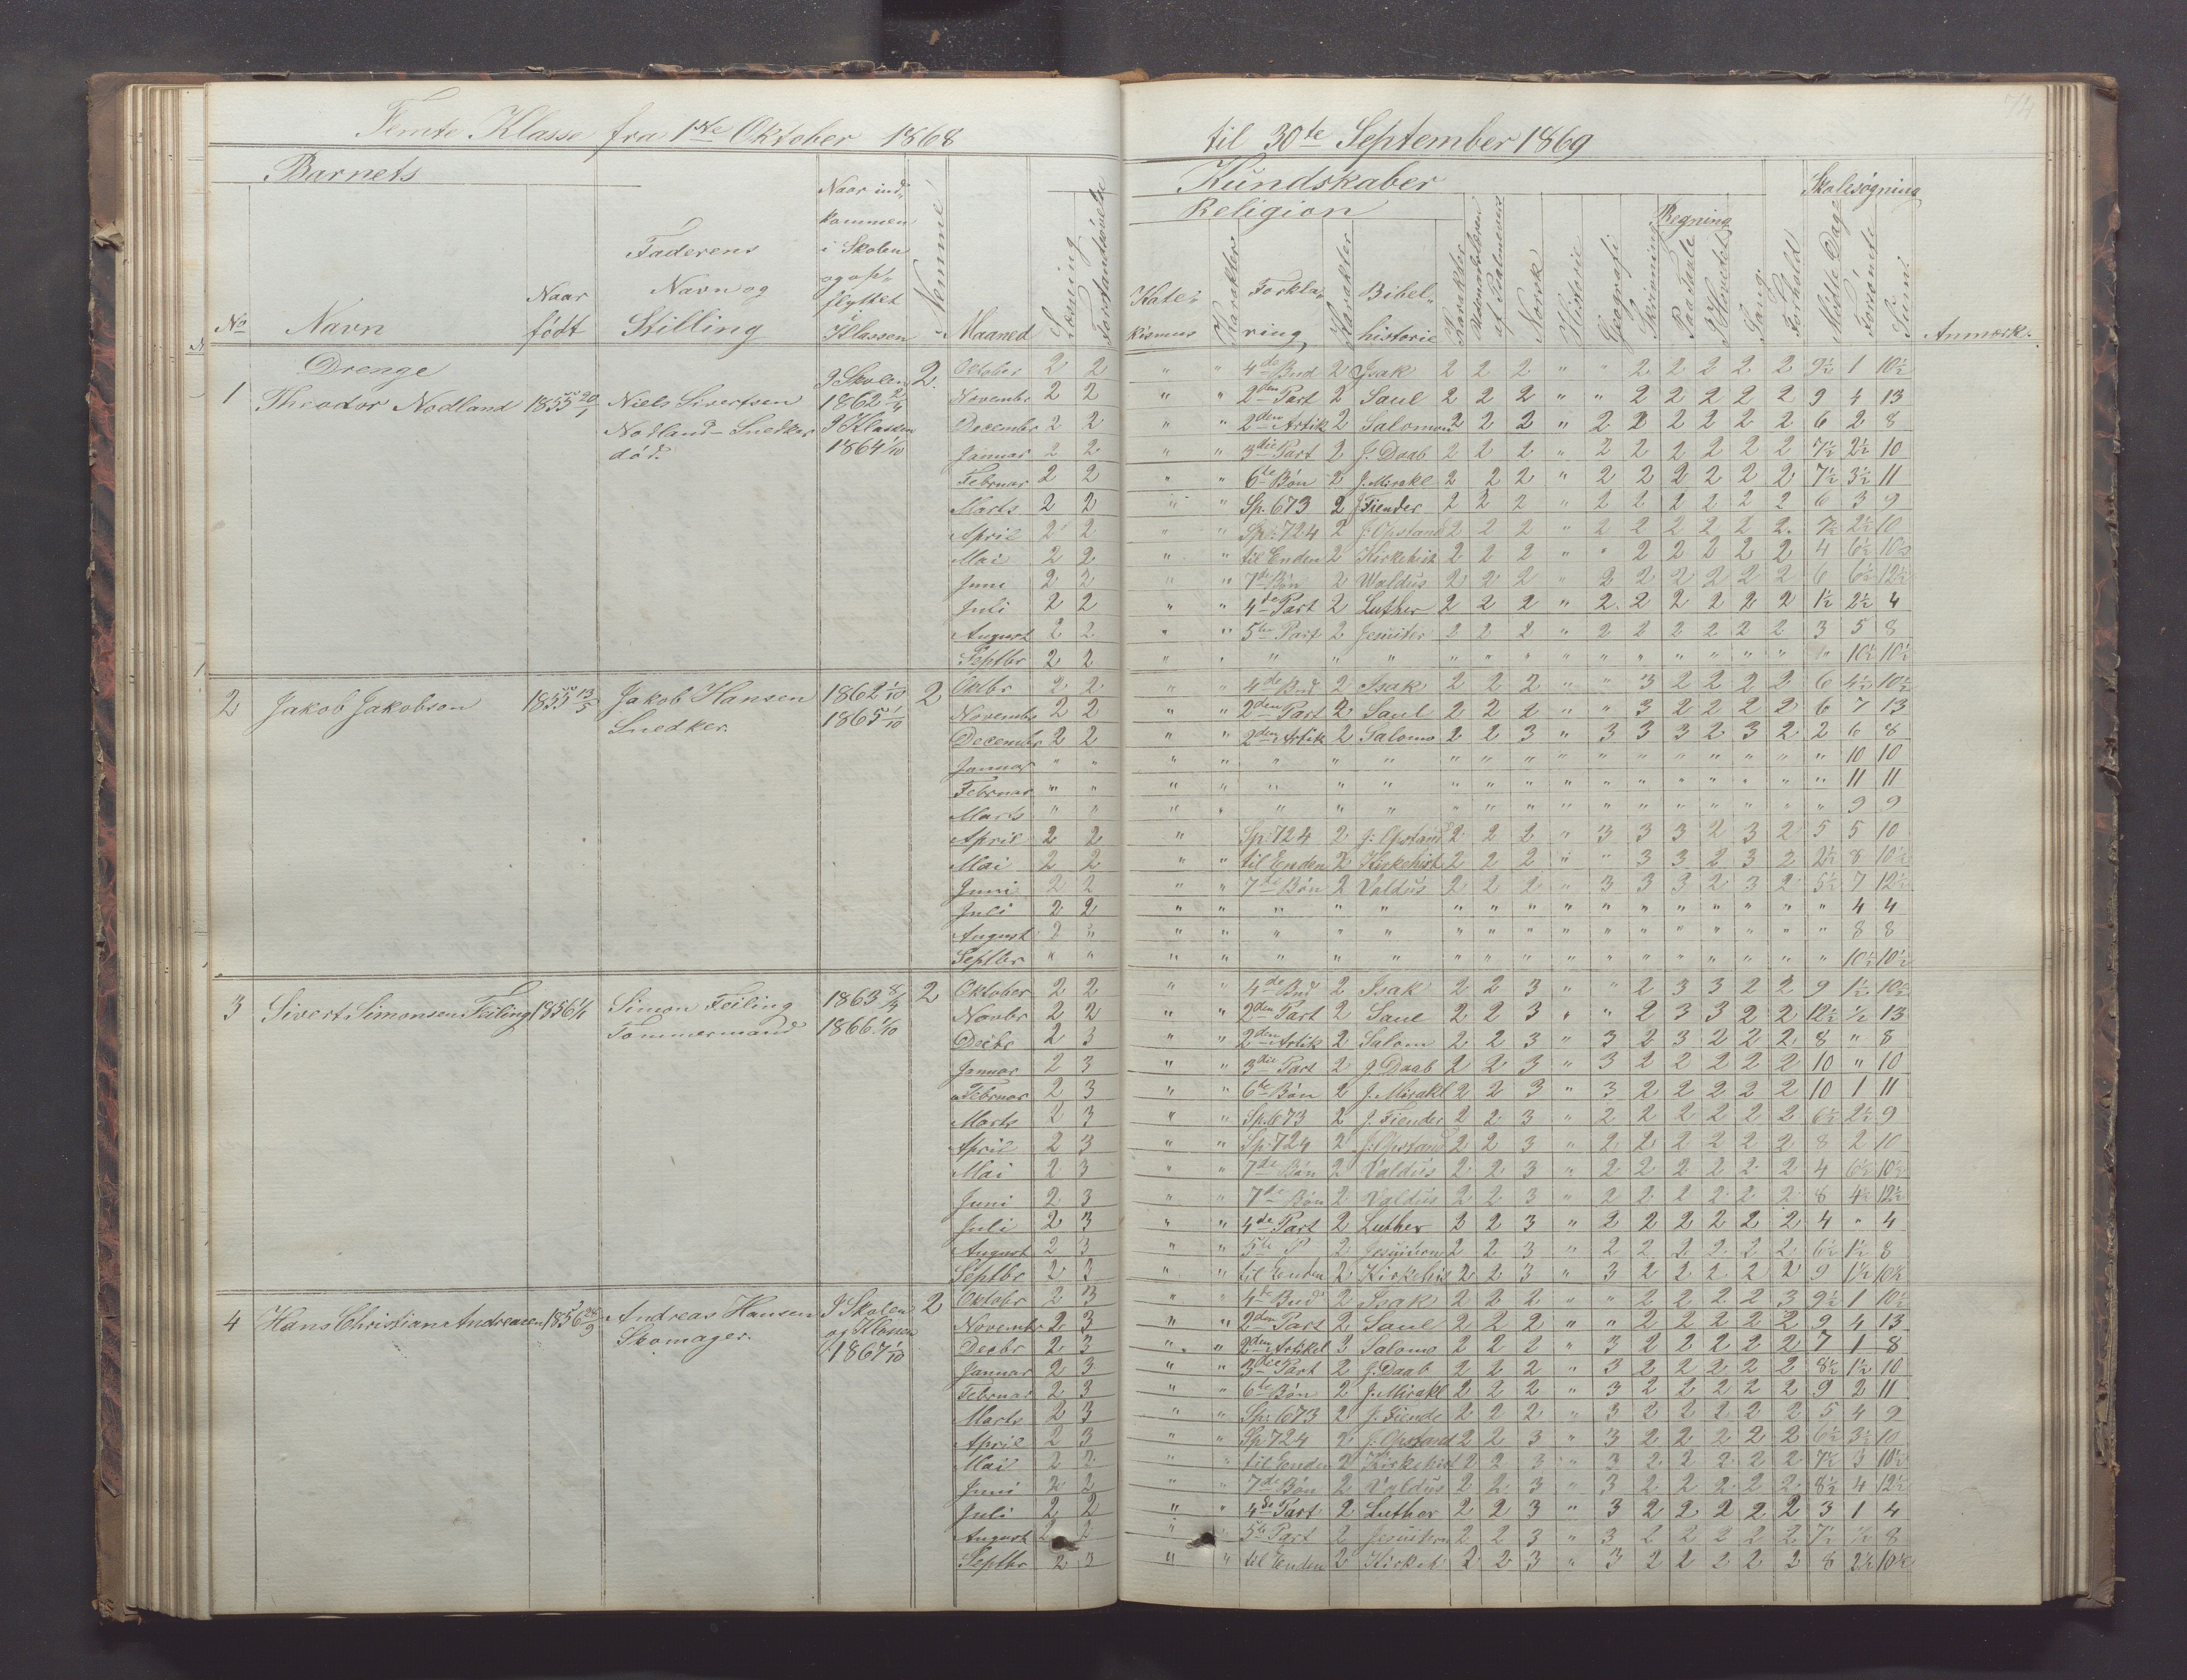 Femte Klasse fra 1ste Oktober 1868
til 30te September 1869
Barnets
Kundskaber
Skolesøgning
Religion
Regning
No
Navn
Naar født
Faderens Navn og Stilling
Naar indkommen i Skolen og opflyttet i Klassen
Nemme
Maaned
Læsning
Forstandsøvelse
Katekismus
Karakter
Forklaring
Karakter
Bibelhistorie
Karakter
Udenadslæsen af Salmevers
Norsk
Historie
Geografi
Skrivning
Paa Tavle
I Hovedet
Sang
Forhold
Mødte Dage
Forsømte
Sum
Anmærk.
Drenge
1 Theodor Nodland 1855 20/1 Niels Sivertsen Nodland - Snedker død. I Skolen 1862 I Klassen 1864 1/10 2
Oktober 2 2 " " 4de Bud 2 Isak 2 2 2 " " 2 2 2 2 2 9½ 1 10½
Novembr 2 2 " " 2den Part 2 Saul 2 2 2 " " 2 2 2 2 2 9 4 13
Decembr 2 2 " " 2den Artik 2 Salomon 2 2 2 " 2 2 2 2 2 2 6 2 8
Januar 2 2 " " 3die Part 2 J. Daab 2 2 2 " 2 2 2 2 2 2 7½ 2½ 10
Februar 2 2 " " 6te Bøn 2 J. Mirakl 2 2 2 " 2 2 2 2 2 2 7½ 3½ 11
Marts 2 2 " " Sp. 673 2 J Fiender 2 2 2 " 2 2 2 2 2 2 6 3 9
April 2 2 " " Sp. 724 2 J. Opstand 2 2 2 " 2 2 2 2 2 2 7½ 2½ 10
Mai 2 2 " " til Enden 2 Kirkehist 2 2 2 " " 2 2 2 2 2 4 6½ 10½
Juni 2 2 " " 7de Bøn 2 Waldus 2 2 2 " 2 2 2 2 2 2 6 6½ 12½
Juli 2 2 " " 4de Part 2 Luther 2 2 2 " 2 2 2 2 2 2 1½ 2½ 4
August 2 2 " " 5te Part 2 Jesuiter 2 2 2 " 2 2 2 2 2 2 3 5 8
Septbr 2 2 " " " " " " " " " " " " " " " " 10½ 10½
2 Jakob Jakobson 1855 13/5 Jakob Hansen Snedker. 1862 1/10 1865 1/10 2
Oktbr 2 2 " " 4de Bud 2 Isak 2 2 2 " " 3 2 2 2 2 6 4½ 10½
Novembr 2 2 " " 2den Part 2 Saul 2 2 2 " " 3 2 2 2 2 6 7 13
Decembr 2 2 " " 2den Artik 2 Salomo 2 2 3 " 3 3 3 2 3 2 2 6 8
Januar " " " " " " " " " " " " " " " " " " " 10 10
Februar " " " " " " " " " " " " " " " " " " " 11 11
Marts " " " " " " " " " " " " " " " " " " " 9 9
April 2 2 " Sp. 724 2 J. Opstand 2 2 2 " 3 3 3 2 3 2 5 5 10
Mai 2 2 " " til Enden 2 Kirkehist 2 2 2 " " 3 3 2 3 2 2½ 8 10½
Juni 2 2 " " 7de Bøn 2 Valdus 2 2 2 " 3 3 3 2 3 2 5½ 7 12½
Juli 2 2 " " " " " " " " " " " " " " " " " 4 4
August 2 " " " " " " " " " " " " " " " " " " 8 8
Septbr " " " " " " " " " " " " " " " " " " " 10½ 10½
3 Sivert Simonsen Feiling 1856 1/1 Simon Feiling Tømmermand 1863 8/4 1866 1/10 2
Oktober 2 2 " " 4de Bud 2 Isak 2 2 3 " " 2 3 3 2 2 9 1½ 10½
Novbr 2 2 " " 2den Part 2 Saul 2 2 3 " " 2 3 3 2 2 12½ ½ 13
Decbr 2 3 " " 2den Artik 2 Salom 2 2 3 " 3 2 3 2 2 2 8 " 8
Januar 2 3 " " 3die Part 2 J. Daab 2 2 3 " 3 2 2 2 2 2 10 " 10
Februar 2 3 " " 6te Bøn 2 J. Mirakl 2 2 3 " 3 2 2 2 2 2 10 1 11
Marts 2 3 " " Sp. 673 2 J. Fiender 2 2 3 " 2 2 2 2 2 2 6½ 2½ 9
April 2 3 " " Sp. 724 2 J. Opstand 2 2 3 " 2 2 2 2 2 2 8 2 10
Mai 2 3 " " 7de Bøn 2 Valdus 2 2 3 " 2 2 2 2 2 2 4 6½ 10½
Juni 2 3 " " 7de Bøn 2 Valdus 2 2 3 " 2 2 2 2 2 2 8 4½ 12½
Juli 2 3 " " 4de Part 2 Luther 2 2 3 " 2 2 2 2 2 2 4 " 4
August 2 3 " " 5te P 2 Jesuitern 2 2 3 " 2 2 2 2 2 2 6½ 1½ 8
Septbr 2 3 " " til Enden 2 Kirkehis 2 2 3 " 3 2 2 2 2 2 9 1½ 10½
4 Hans Christian Andreasen 1856 28/9 Andreas Hansen Skomager. I Skolen og Klassen 1867 1/10 2
Oktobr 2 3 " " 4de Bud 2 Isak 2 2 2 " " 2 2 2 2 3 9½ 1 10½
Novembr 2 3 " " 2den Part 2 Saul 2 2 2 " " 2 2 2 2 2 9 4 13
Decbr 2 3 " " 2den Artikel 3 Salomo 2 2 2 " 3 2 2 2 2 2 7 1 8
Januar 2 3 " " 3die Part 2 J. Daab 2 2 2 " 3 2 2 2 2 2 8½ 1½ 10
Februar 2 3 " " 6te Bøn 2 J. Mirakl 2 2 2 " 3 2 2 2 2 2 9 2 11
Marts 2 3 " " Sp. 673 2 J. Fiende 2 2 2 " 3 2 2 2 2 2 5 4 9
April 2 3 " " Sp 724 2 J. Opstand 2 2 3 " 3 2 2 2 2 2 6½ 3½ 10
Mai 2 2 " " til Enden 2 Kirkehist 2 2 3 " 3 2 2 2 2 2 7½ 3 10½
Juni 2 2 " " 7de Bøn 2 Valdus 2 2 3 " 3 2 2 2 2 2 8½ 4 12½
Juli 2 2 " " 4de Part 2 Luther 2 2 3 " 3 2 2 2 2 2 3 1 4
August 2 2 " 5te Part 2 Jesuitern 2 2 3 " 3 2 2 2 2 2 7½ ½ 8
Septbr 2 3 " " til Enden 2 Kirkeh 2 2 3 " 3 2 2 2 2 2 8 2½ 10½